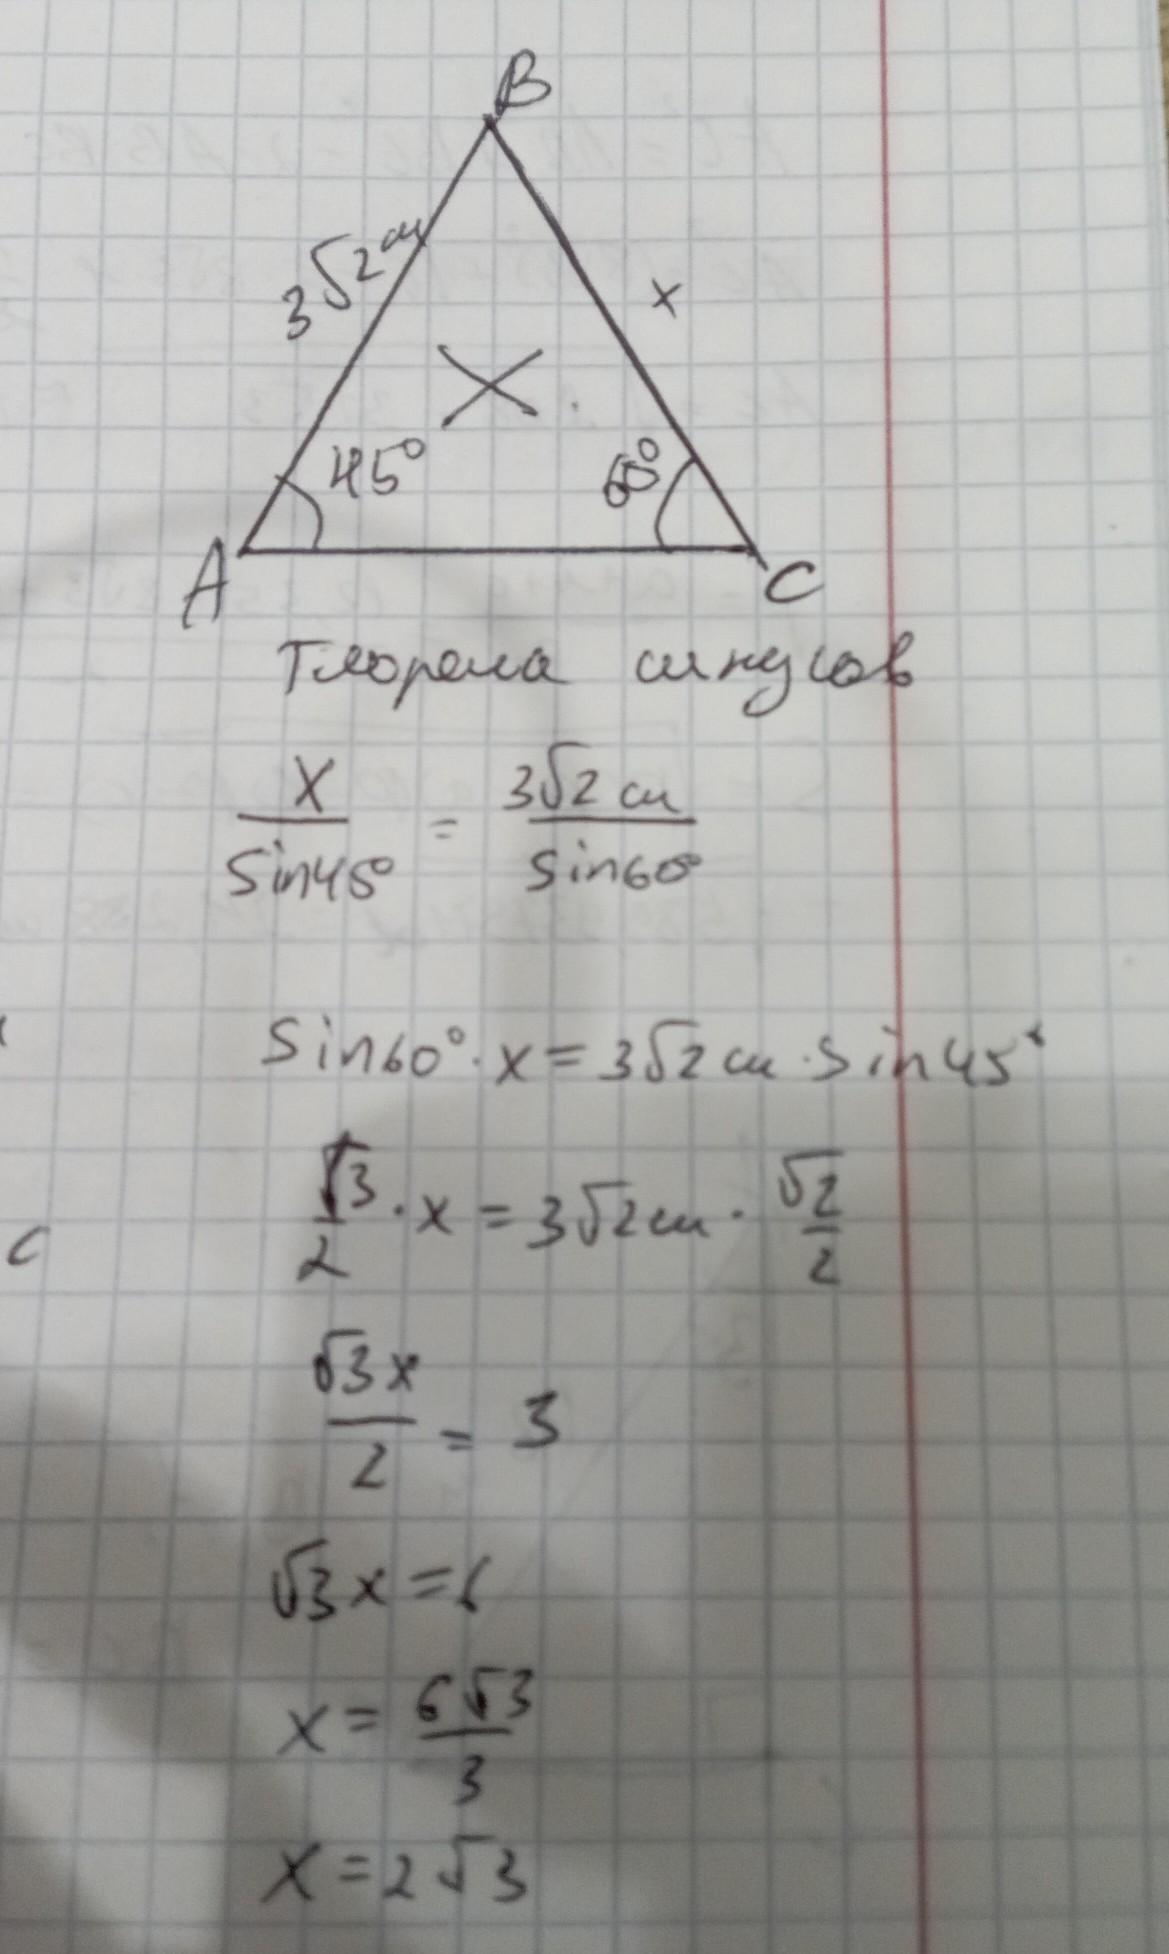 B
3√2 см
x
45°
60°
A
C
Теорема синусов
x/sin45° = 3√2 см/sin60°
sin60° · x = 3√2 см · sin45°
√3/2 · x = 3√2 см · √2/2
c
√3x/2 = 3
√3x = 6
x = 6√3/3
x = 2√3